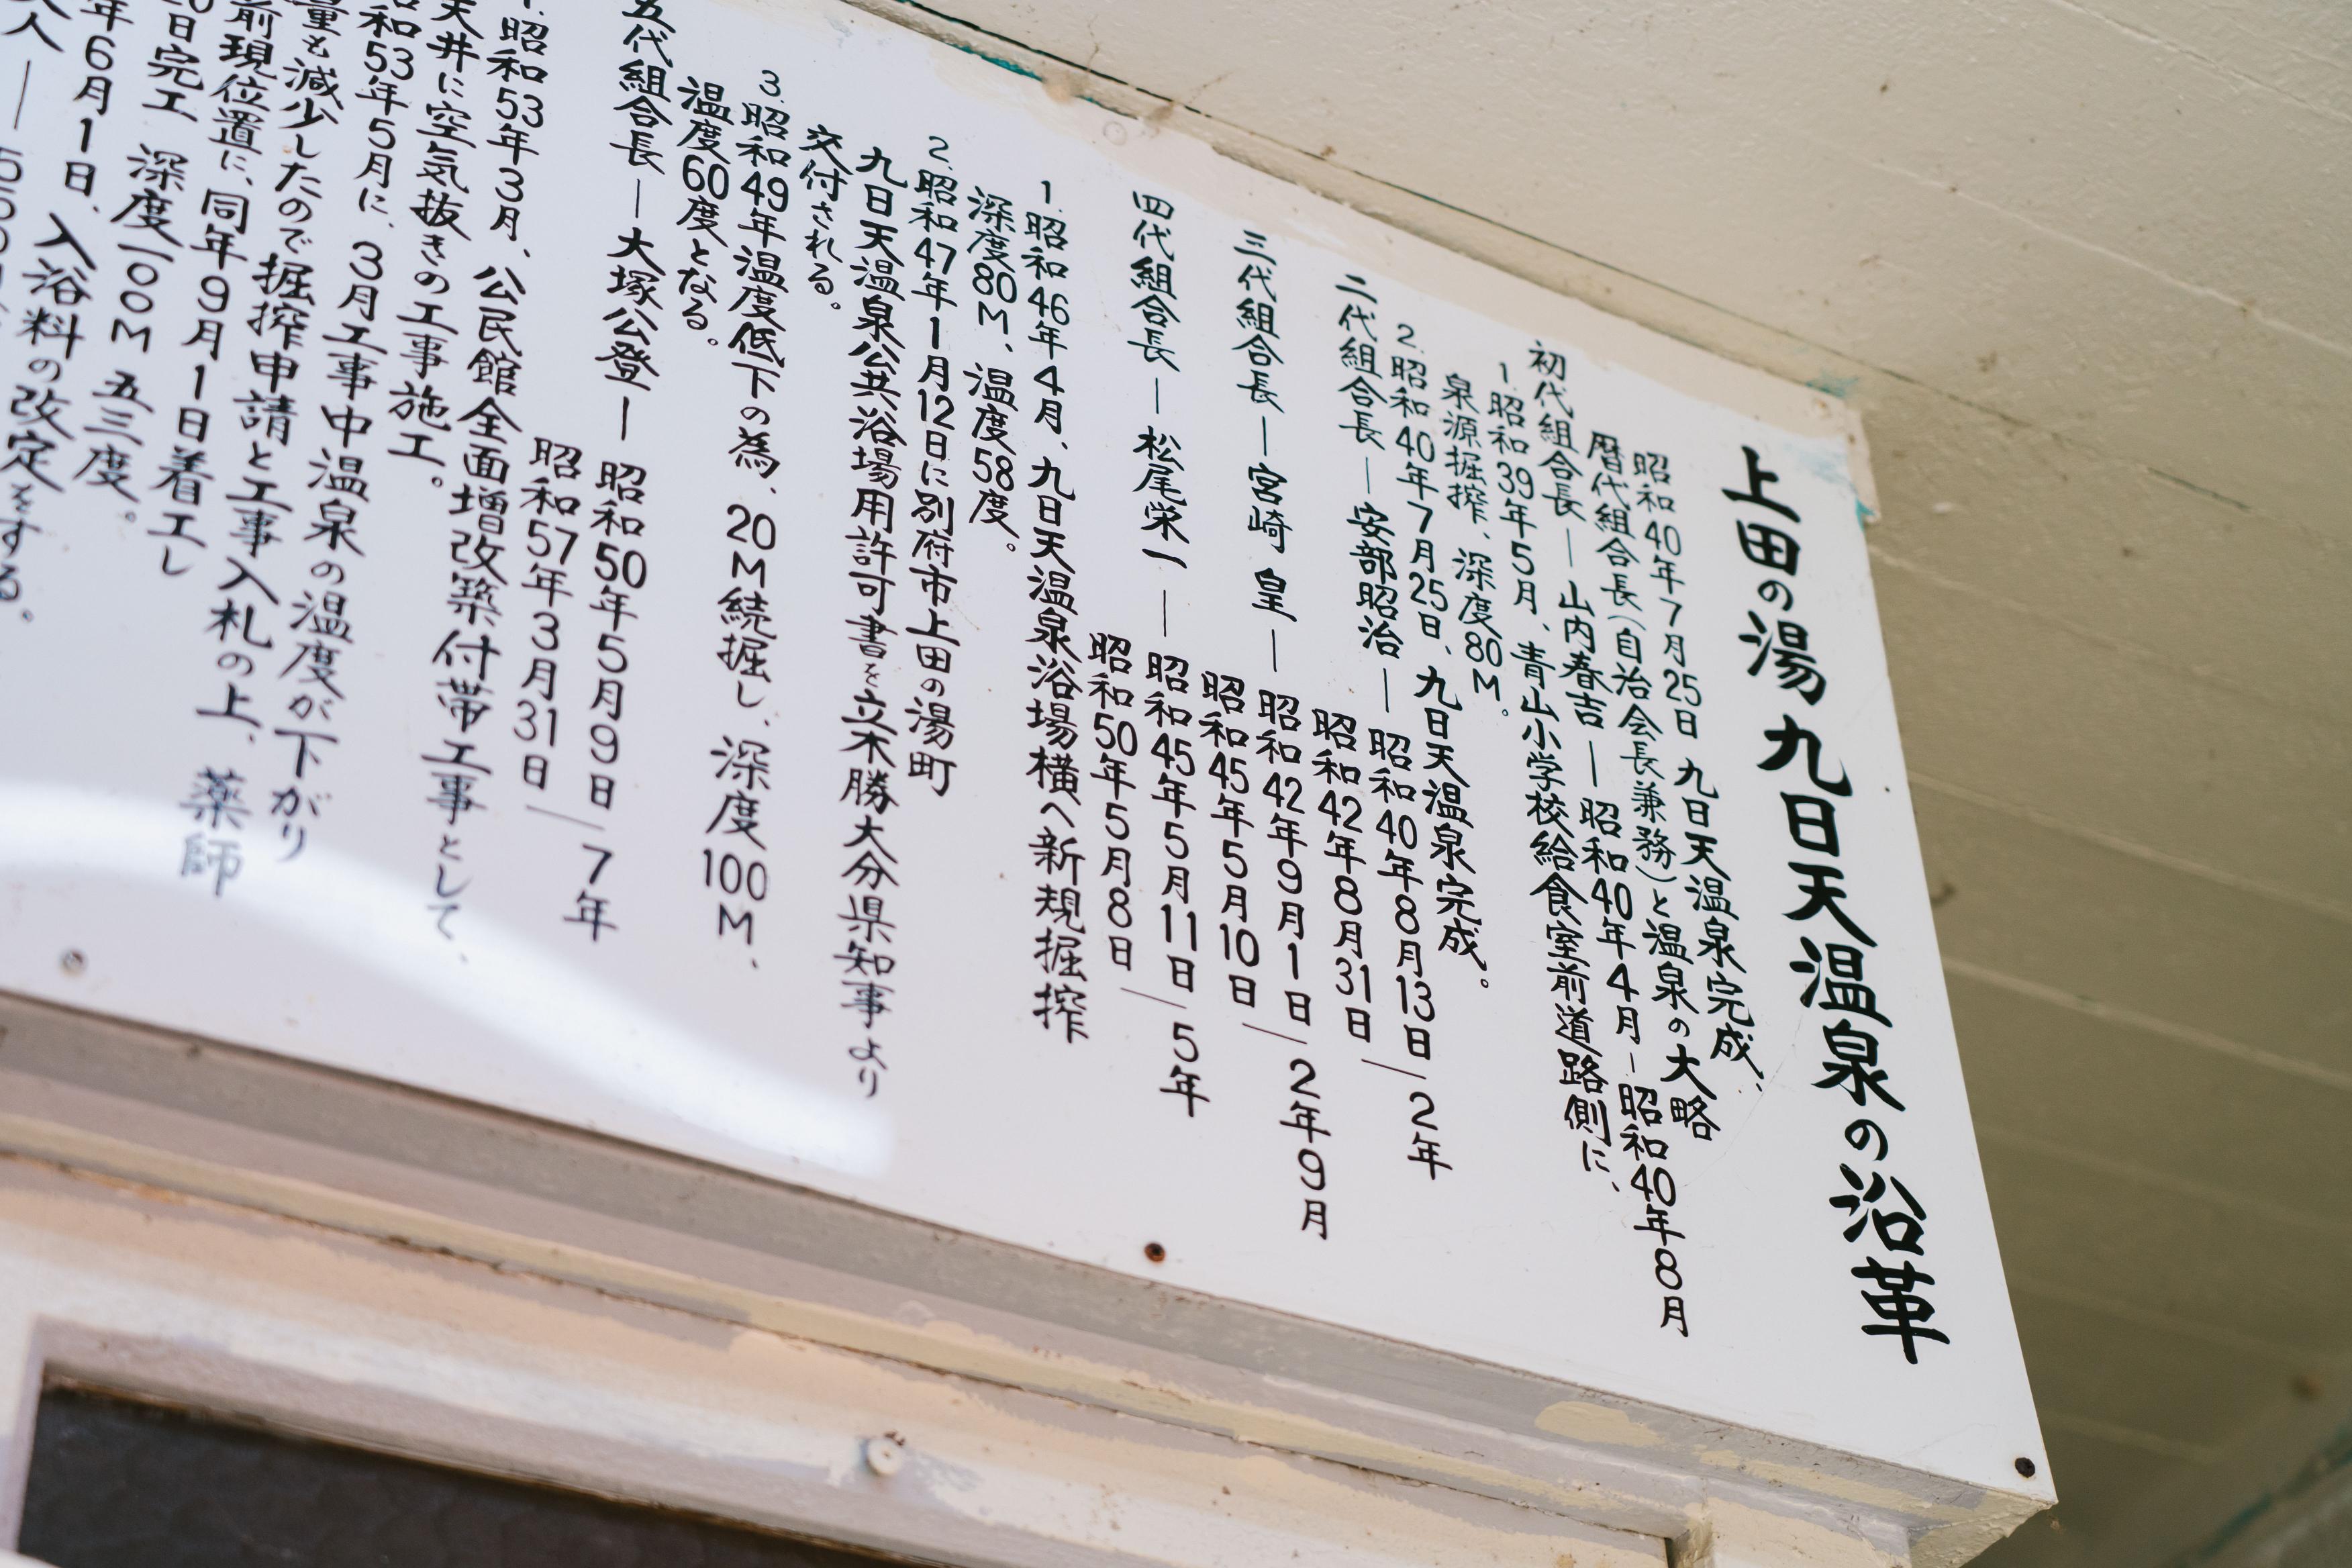 上田の湯九日天温泉の沿革
昭和40年7月25日 九日天温泉完成、
暦代組合長(自治会長兼務)と温泉の大略
初代組合長―山内春吉―昭和40年4月-昭和40年8月
1.昭和39年5月、青山小学校給食室前道路側に、
泉源掘搾、深度80M。
2.昭和40年7月25日、九日天温泉完成。
二代組合長―安部昭治―昭和40年8月13日
昭和42年8月31日―2年
三代組合長―宮崎 皇―昭和42年9月1日
昭和45年5月10日―2年9月
四代組合長―松尾栄一―昭和45年5月11日
昭和50年5月8日―5年
1.昭和46年4月、九日天温泉浴場横へ新規掘搾
深度80M、温度58度。
2.昭和47年1月12日に別府市上田の湯町
九日天温泉公共浴場用許可書を立木勝大分県知事より
交付される。
3.昭和49年温度低下の為、20M続掘し、深度100M、
温度60度となる。
五代組合長―大塚公登―昭和50年5月9日
昭和57年3月31日―7年
1.昭和53年3月、公民館全面増改築付帯工事として、
天井に空気抜きの工事施工。
和53年5月に、3月工事中温泉の温度が下がり
量も減少したので掘搾申請と工事入札の上、薬師
前現位置に、同年9月1日着工し
日完工 深度一00M 五三度。
年6月1日、入浴料の改定をする。